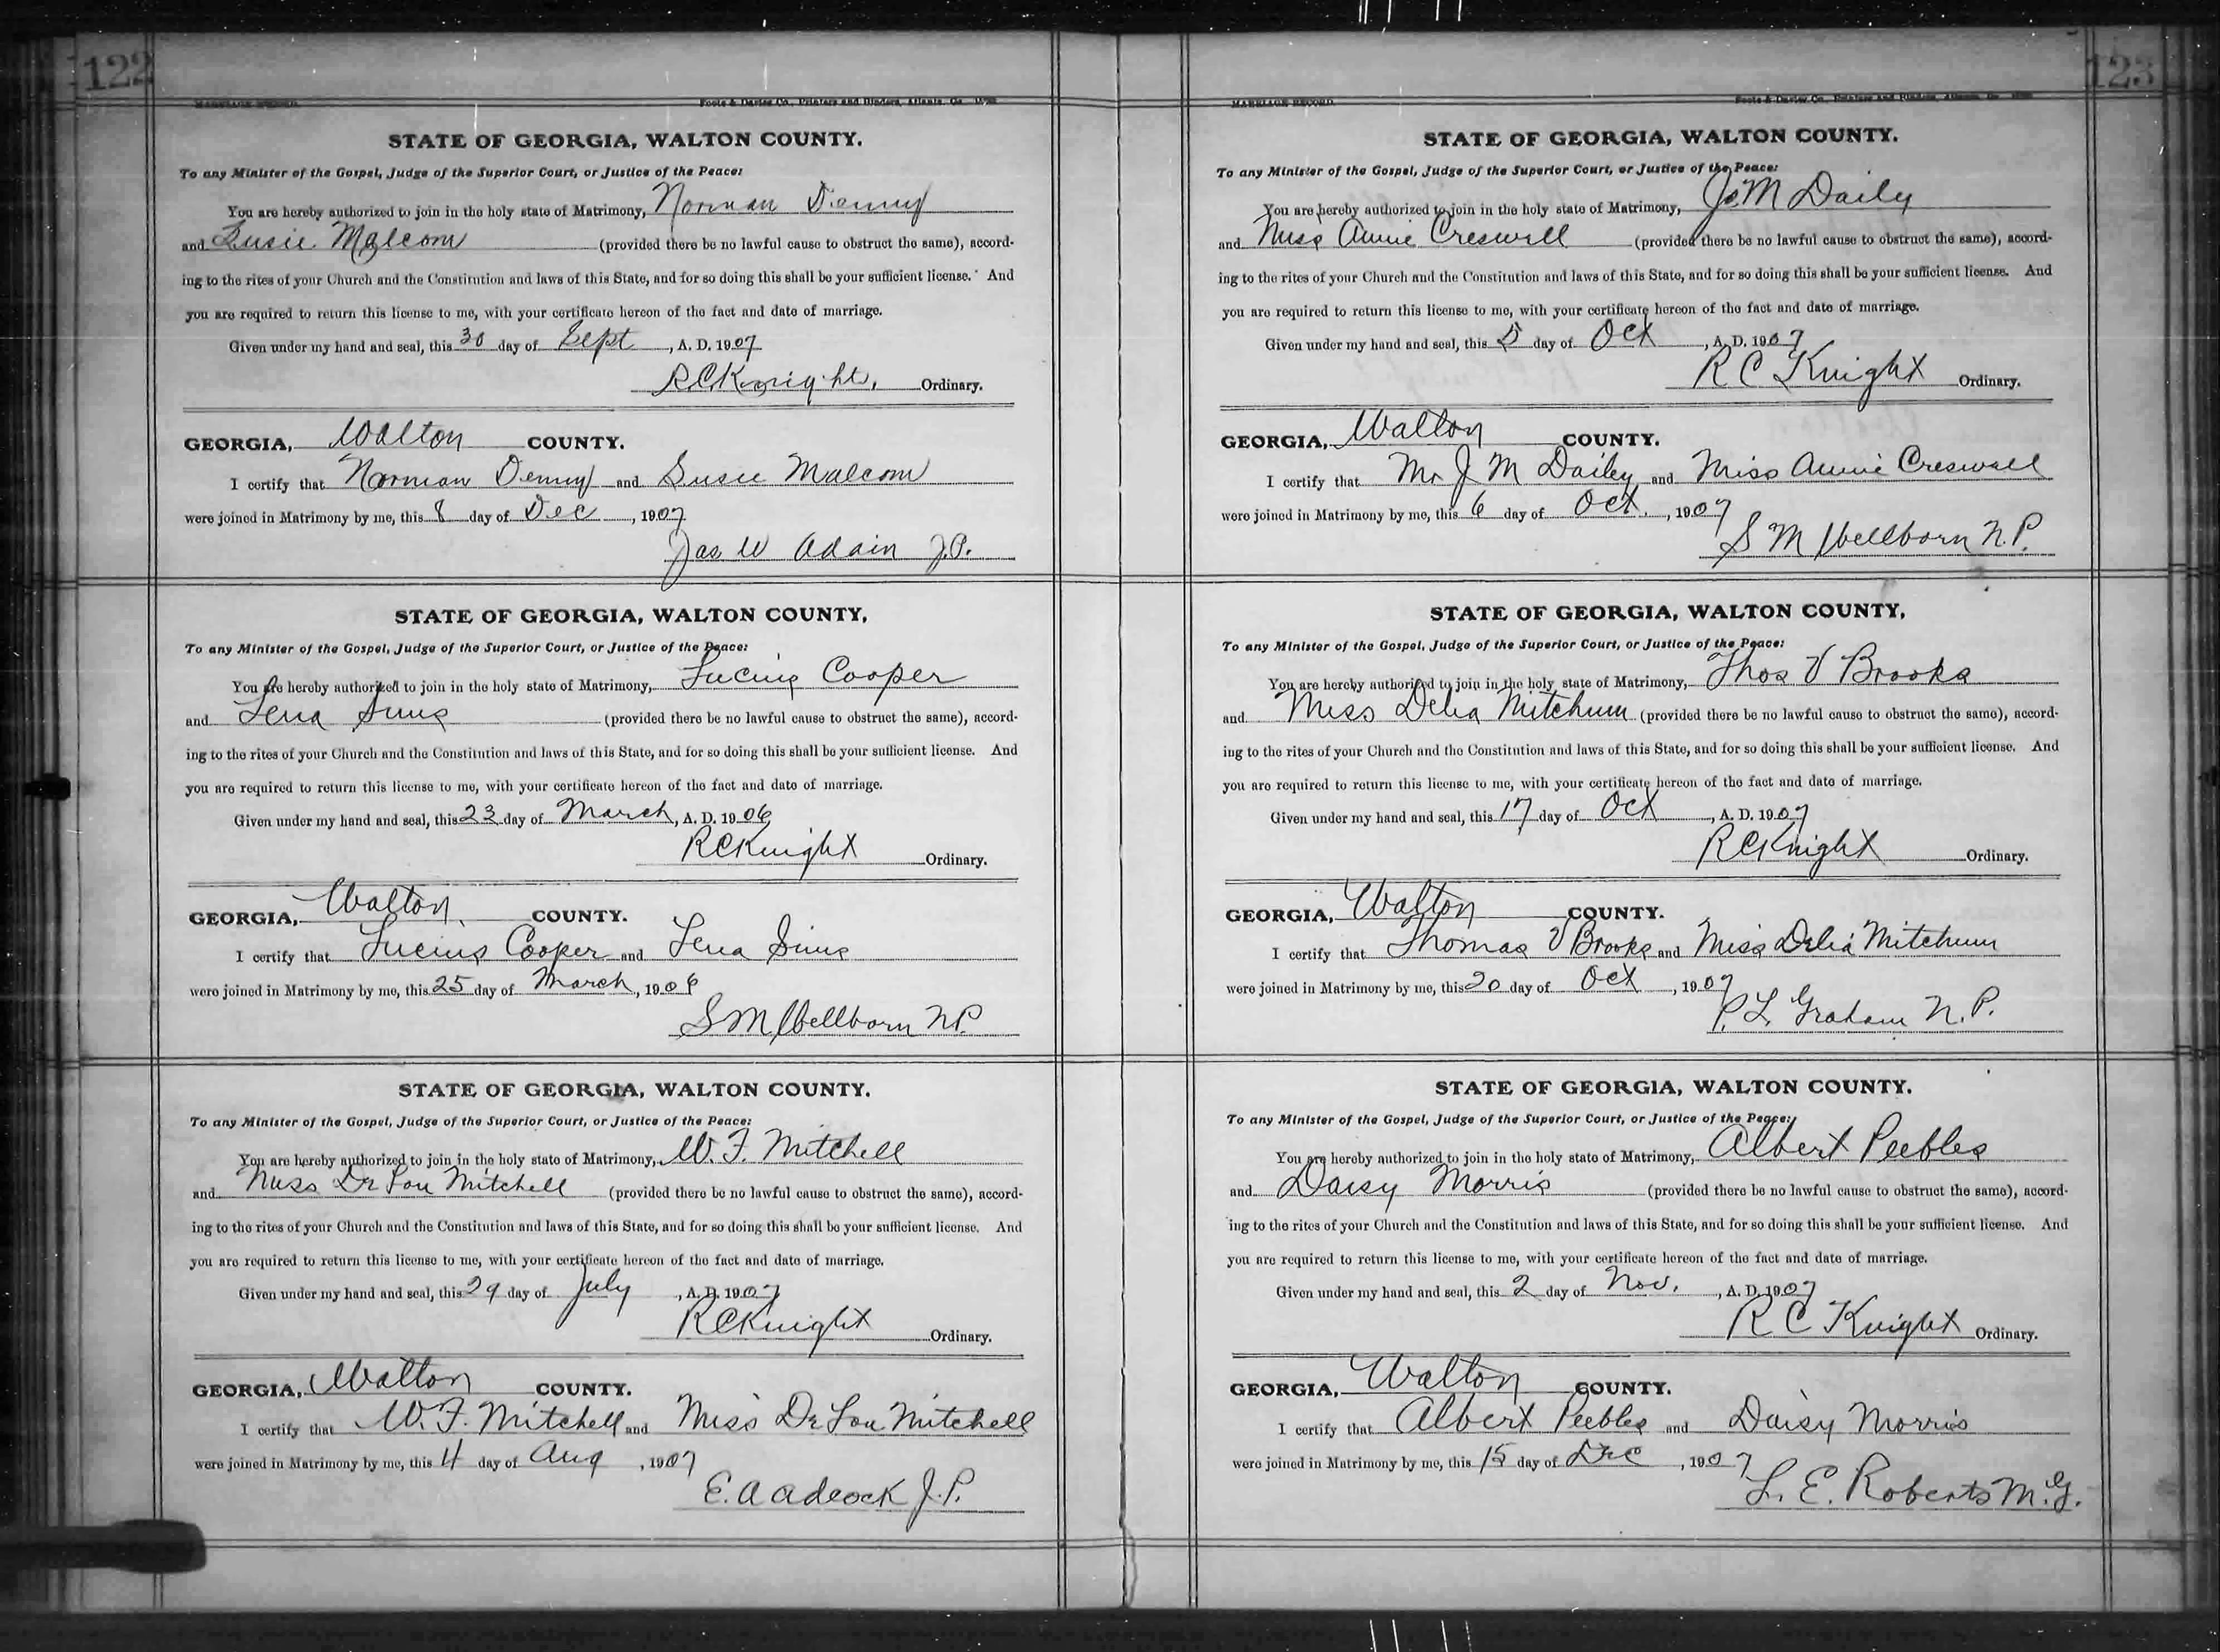 122
MARRIAGE RECORD. Foote & Davies Co., Printers and Binders, Atlanta, Ga.
STATE OF GEORGIA, WALTON COUNTY.
To any Minister of the Gospel, Judge of the Superior Court, or Justice of the Peace:
You are hereby authorized to join in the holy state of Matrimony, Norman Denny
and Susie Malcom (provided there be no lawful cause to obstruct the same), accord-
ing to the rites of your Church and the Constitution and laws of this State, and for so doing this shall be your sufficient license. And
you are required to return this license to me, with your certificate hereon of the fact and date of marriage.
Given under my hand and seal, this 30 day of Sept, A. D. 1907
R C Knight, Ordinary.
GEORGIA, Walton COUNTY.
I certify that Norman Denny and Susie Malcom
were joined in Matrimony by me, this 8 day of Dec, 1907
Jas W Adain J.P.
STATE OF GEORGIA, WALTON COUNTY,
To any Minister of the Gospel, Judge of the Superior Court, or Justice of the Peace:
You are hereby authorized to join in the holy state of Matrimony, Lucius Cooper
and Lena Sims (provided there be no lawful cause to obstruct the same), accord-
ing to the rites of your Church and the Constitution and laws of this State, and for so doing this shall be your sufficient license. And
you are required to return this license to me, with your certificate hereon of the fact and date of marriage.
Given under my hand and seal, this 23 day of March, A. D. 1906
R C Knight Ordinary.
GEORGIA, Walton COUNTY.
I certify that Lucius Cooper and Lena Sims
were joined in Matrimony by me, this 25 day of March, 1906
S M Wellborn N.P.
STATE OF GEORGIA, WALTON COUNTY.
To any Minister of the Gospel, Judge of the Superior Court, or Justice of the Peace:
You are hereby authorized to join in the holy state of Matrimony, W. F. Mitchell
and Miss De Lou Mitchell (provided there be no lawful cause to obstruct the same), accord-
ing to the rites of your Church and the Constitution and laws of this State, and for so doing this shall be your sufficient license. And
you are required to return this license to me, with your certificate hereon of the fact and date of marriage.
Given under my hand and seal, this 29 day of July, A. D. 1907
R C Knight Ordinary.
GEORGIA, Walton COUNTY.
I certify that W. F. Mitchell and Miss De Lou Mitchell
were joined in Matrimony by me, this 4 day of Aug, 1907
E. A Adcock J.P.
123
MARRIAGE RECORD. Foote & Davies Co., Printers and Binders, Atlanta, Ga.
STATE OF GEORGIA, WALTON COUNTY.
To any Minister of the Gospel, Judge of the Superior Court, or Justice of the Peace:
You are hereby authorized to join in the holy state of Matrimony, J. M Daily
and Miss Annie Creswell (provided there be no lawful cause to obstruct the same), accord-
ing to the rites of your Church and the Constitution and laws of this State, and for so doing this shall be your sufficient license. And
you are required to return this license to me, with your certificate hereon of the fact and date of marriage.
Given under my hand and seal, this 5 day of Oct, A. D. 1907
R C Knight Ordinary.
GEORGIA, Walton COUNTY.
I certify that Mr J M Dailey and Miss Annie Creswell
were joined in Matrimony by me, this 6 day of Oct., 1907
S M Wellborn N.P.
STATE OF GEORGIA, WALTON COUNTY,
To any Minister of the Gospel, Judge of the Superior Court, or Justice of the Peace:
You are hereby authorized to join in the holy state of Matrimony, Thos V Brooks
and Miss Delia Mitchum (provided there be no lawful cause to obstruct the same), accord-
ing to the rites of your Church and the Constitution and laws of this State, and for so doing this shall be your sufficient license. And
you are required to return this license to me, with your certificate hereon of the fact and date of marriage.
Given under my hand and seal, this 17 day of Oct, A. D. 1907
R C Knight Ordinary.
GEORGIA, Walton COUNTY.
I certify that Thomas V Brooks and Miss Delia Mitchum
were joined in Matrimony by me, this 20 day of Oct, 1907
P. L. Graham N.P.
STATE OF GEORGIA, WALTON COUNTY.
To any Minister of the Gospel, Judge of the Superior Court, or Justice of the Peace:
You are hereby authorized to join in the holy state of Matrimony, Albert Peebles
and Daisy Morris (provided there be no lawful cause to obstruct the same), accord-
ing to the rites of your Church and the Constitution and laws of this State, and for so doing this shall be your sufficient license. And
you are required to return this license to me, with your certificate hereon of the fact and date of marriage.
Given under my hand and seal, this 2 day of Nov., A. D. 1907
R C Knight Ordinary.
GEORGIA, Walton COUNTY.
I certify that Albert Peebles and Daisy Morris
were joined in Matrimony by me, this 15 day of Dec, 1907
L. E. Roberts M.G.